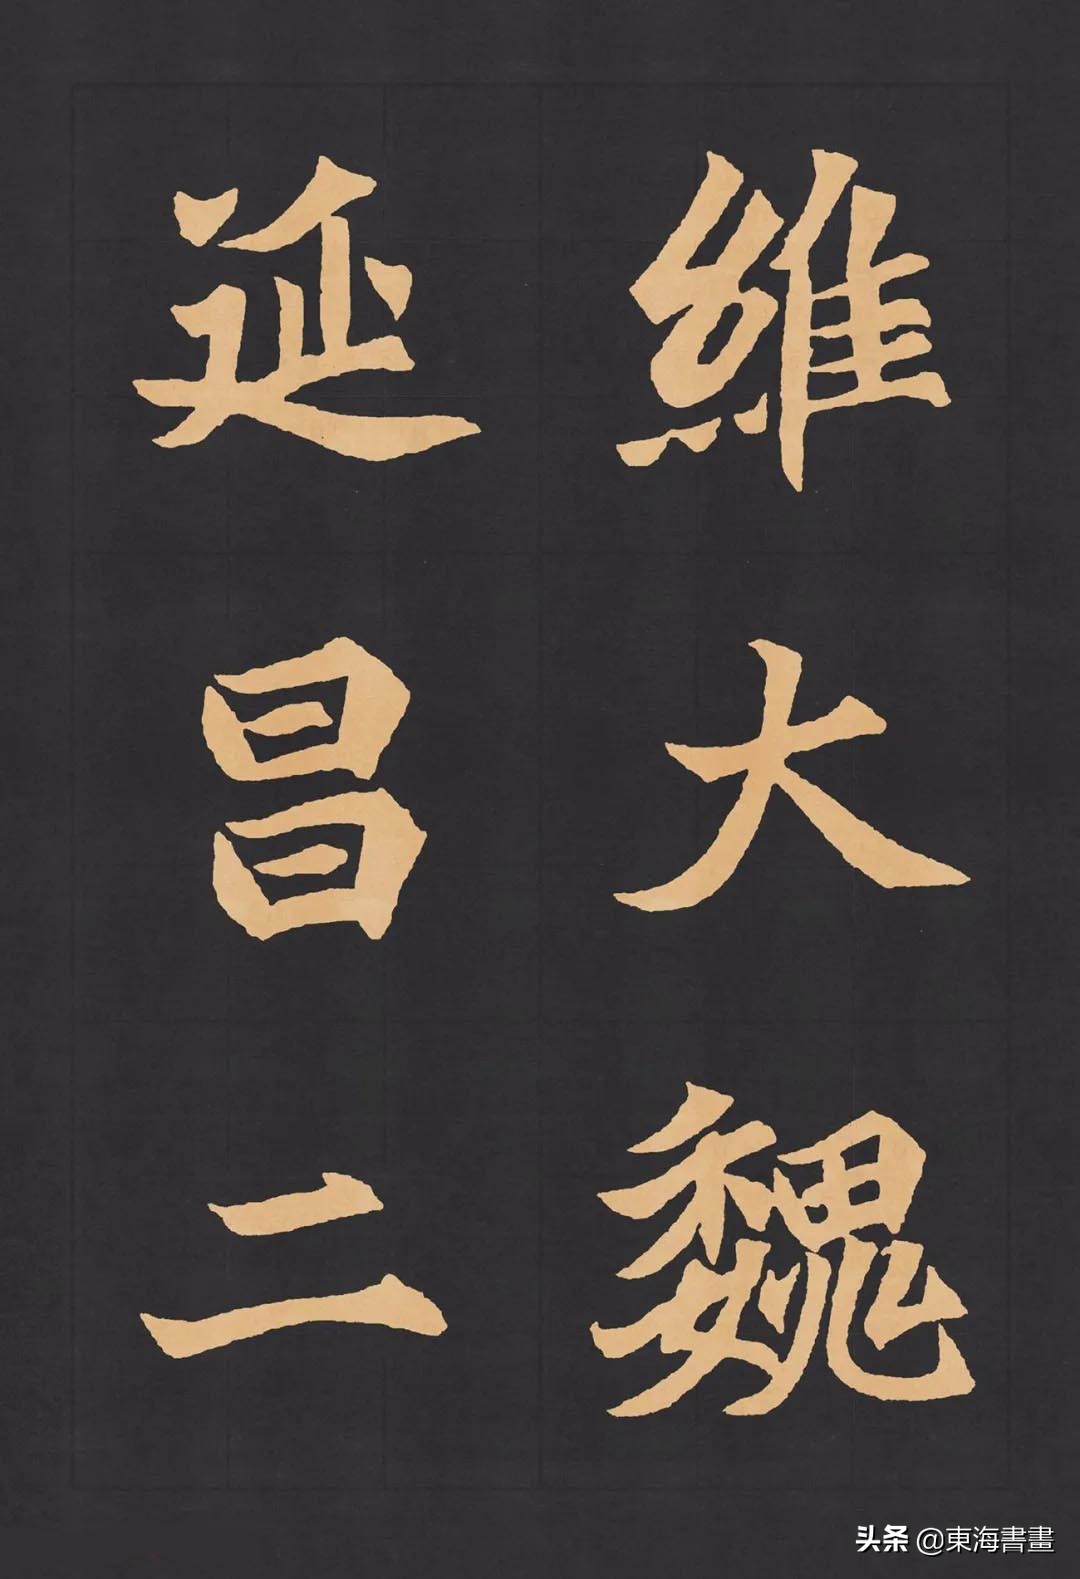 維大魏
延昌二
头条 @東海書畫